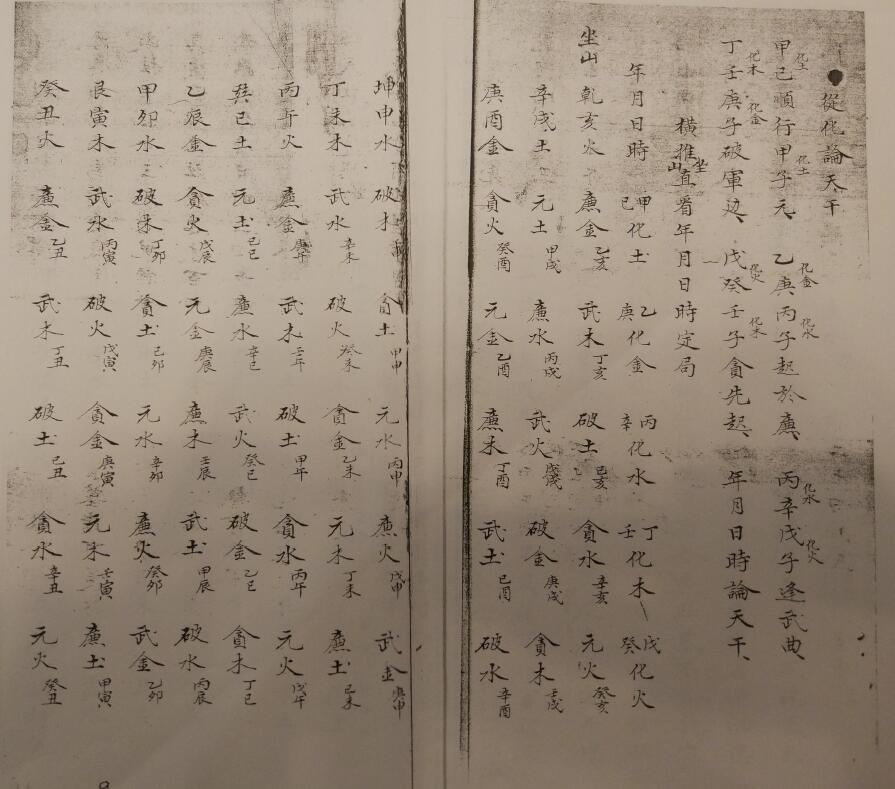 ●從化論天干
甲己順行甲子元、乙庚丙子起於廉、丙辛戊子逢武曲、
化土 化土 化金 化水 化水 化火
丁壬庚子破軍边、戊癸壬子貪先起、年月日時論天干、
化木 化金 化火 化木
橫推直看年月日時定局
坐山
年月日時 甲己化土 乙庚化金 丙辛化水 丁壬化木 戊癸化火
坐山 乾亥火 廉金乙亥 武木丁亥 破土己亥 貪水辛亥 元火癸亥
辛戌土 元土甲戌 廉水丙戌 武火戊戌 破金庚戌 貪木壬戌
庚酉金 貪火癸酉 元金乙酉 廉木丁酉 武土己酉 破水辛酉
坤申水 破才 貪土甲申 元水丙申 廉火戊申 武金庚申
丁未木 武水辛未 破火癸未 貪金乙未 元木丁未 廉土己未
丙午火 廉金庚午 武木壬午 破土甲午 貪水丙午 元火戊午
巽巳土 元土己巳 廉水辛巳 武火癸巳 破金乙巳 貪木丁巳
乙辰金 貪火戊辰 元金庚辰 廉木壬辰 武土甲辰 破水丙辰
甲卯水 破木丁卯 貪土己卯 元水辛卯 廉火癸卯 武金乙卯
艮寅木 武水丙寅 破火戊寅 貪金庚寅 元木壬寅 廉土甲寅
癸丑火 廉金乙丑 武木丁丑 破土己丑 貪水辛丑 元火癸丑